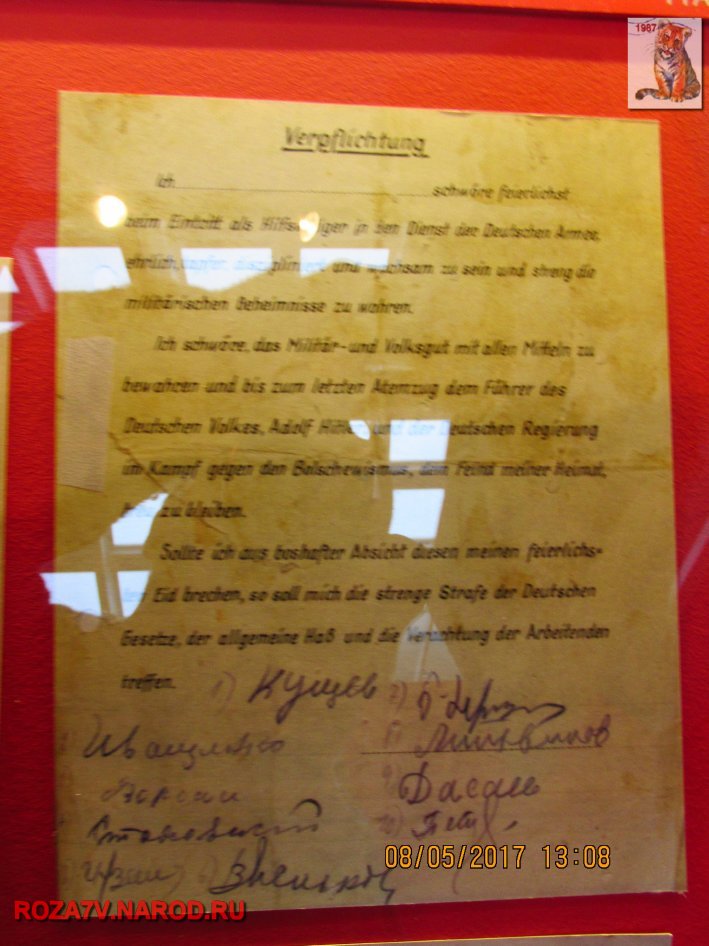 1987
Verpflichtung
Ich schwöre feierlichst
beim Eintritt als Hilfswilliger in den Dienst der Deutschen Armee,
ehrlich, tapfer, diszipliniert und wachsam zu sein und streng die
militärischen Geheimnisse zu wahren.
Ich schwöre, das Militär- und Volksgut mit allen Mitteln zu
bewahren und bis zum letzten Atemzug dem Führer des
Deutschen Volkes, Adolf Hitler, und der Deutschen Regierung
im Kampf gegen den Bolschewismus, dem Feind meiner Heimat,
treu zu bleiben.
Sollte ich aus boshafter Absicht diesen meinen feierlichs-
ten Eid brechen, so soll mich die strenge Strafe der Deutschen
Gesetze, der allgemeine Haß und die Verachtung der Arbeitenden
treffen.
1) Кущев 2)
Иващенко
Литвинов
Дасаев
08/05/2017 13:08
ROZA7V.NAROD.RU